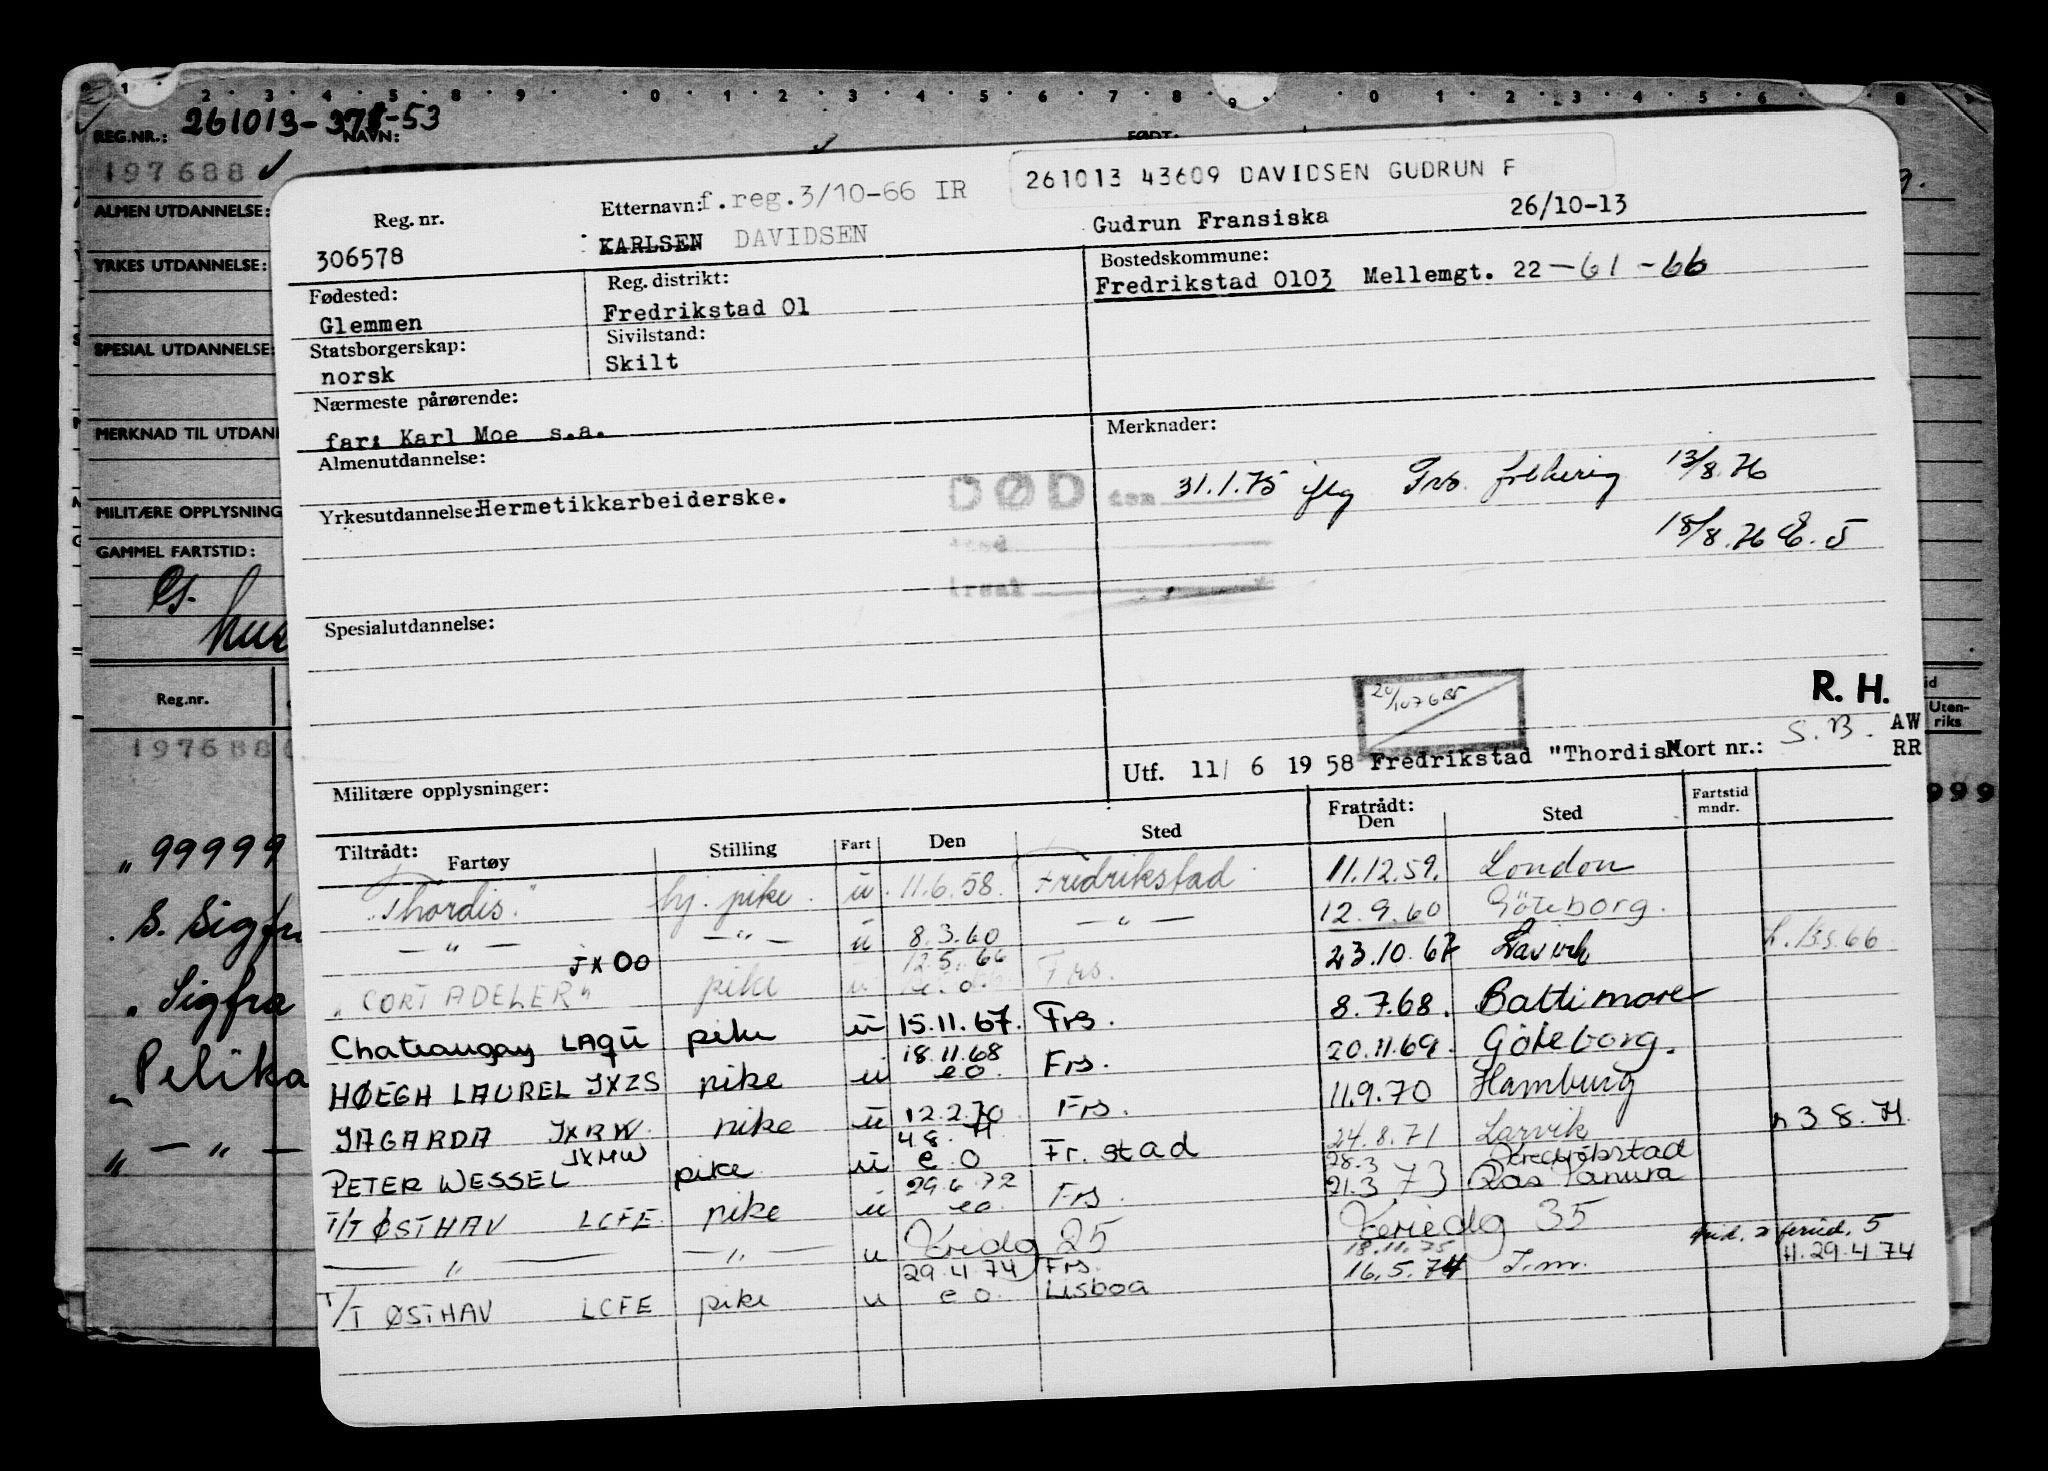 261013-378-53
REG.NR.: NAVN: FØDT:
197688
ALMEN UTDANNELSE:
YRKES UTDANNELSE:
SPESIAL UTDANNELSE:
MERKNAD TIL UTDAN
MILITÆRE OPPLYSNING
GAMMEL FARTSTID:
hus
Reg.nr.
197688
" 99999
S. Sigfr
" Sigfra
" Pelika
" — " —
Uten-
riks
999
261013 43609 DAVIDSEN GUDRUN F
Reg. nr. Etternavn: f.reg.3/10-66 IR
306578 KARLSEN DAVIDSEN Gudrun Fransiska 26/10-13
Fødested: Reg. distrikt: Bostedskommune:
Glemmen Fredrikstad 01 Fredrikstad 0103 Mellemgt. 22 -61 -66
Statsborgerskap: Sivilstand:
norsk Skilt
Nærmeste pårørende:
far: Karl Moe s.a. Merknader:
Almenutdannelse:
DØD den 31.1.75 iflg 13/8.76
Yrkesutdannelse: Hermetikkarbeiderske.
18/8.76 E.J
Spesialutdannelse:
R. H.
S.B. AW
RR
Utf. 11/ 6 19 58 Fredrikstad "Thordis" Kort nr.:
Militære opplysninger:
Tiltrådt: Fratrådt: Fartstid
mndr.
Fartøy Stilling Fart Den Sted Den Sted
"Thordis" hj. pike u 11.6.58. Fredrikstad 11.12.59. London
— " — — " — u 8.3.60 — " — 12.9.60 Göteborg.
JXOO 12.5.66
"CORT ADELER" pike u Frs. 23.10.67 Larvik
Chateaugay LAQU pike u 15.11.67. Frs. 8.7.68. Baltimore
18.11.68
HØEGH LAUREL JXZS pike u eo. Frs. 20.11.69. Göteborg.
JAGARDA JXRW. pike u 12.2.70 Frs. 11.9.70 Hamburg
JXMW 4.8.71
PETER WESSEL pike u e.o Fr.stad 24.8.71 Larvik h 3 8.71.
29.6.72 28.3 Fredrikstad
T/T ØSTHAV LCFE pike u eo. Frs. 21.3 73 Ras Tanura
— " — — " — u Feriedg 25 Feriedg 35
29.4.74 Frs. 18.11.75 H.29.4.74
T/T ØSTHAV LCFE pike u e o. Lisboa 16.5.74 I.m.